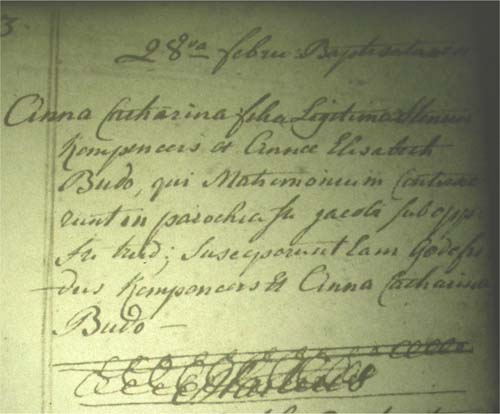 3.
28va febru: Baptisata est
Anna Catharina filia Legitima Henrici
Kempeneers et Annæ Elisabeth
Budo, qui Matrimonium Contraxe
runt in parochia Sti jacobi sub opp
Sti trud; Susceperunt Eam Godefri
dus Kempeneers Et Anna Catharina
Budo —